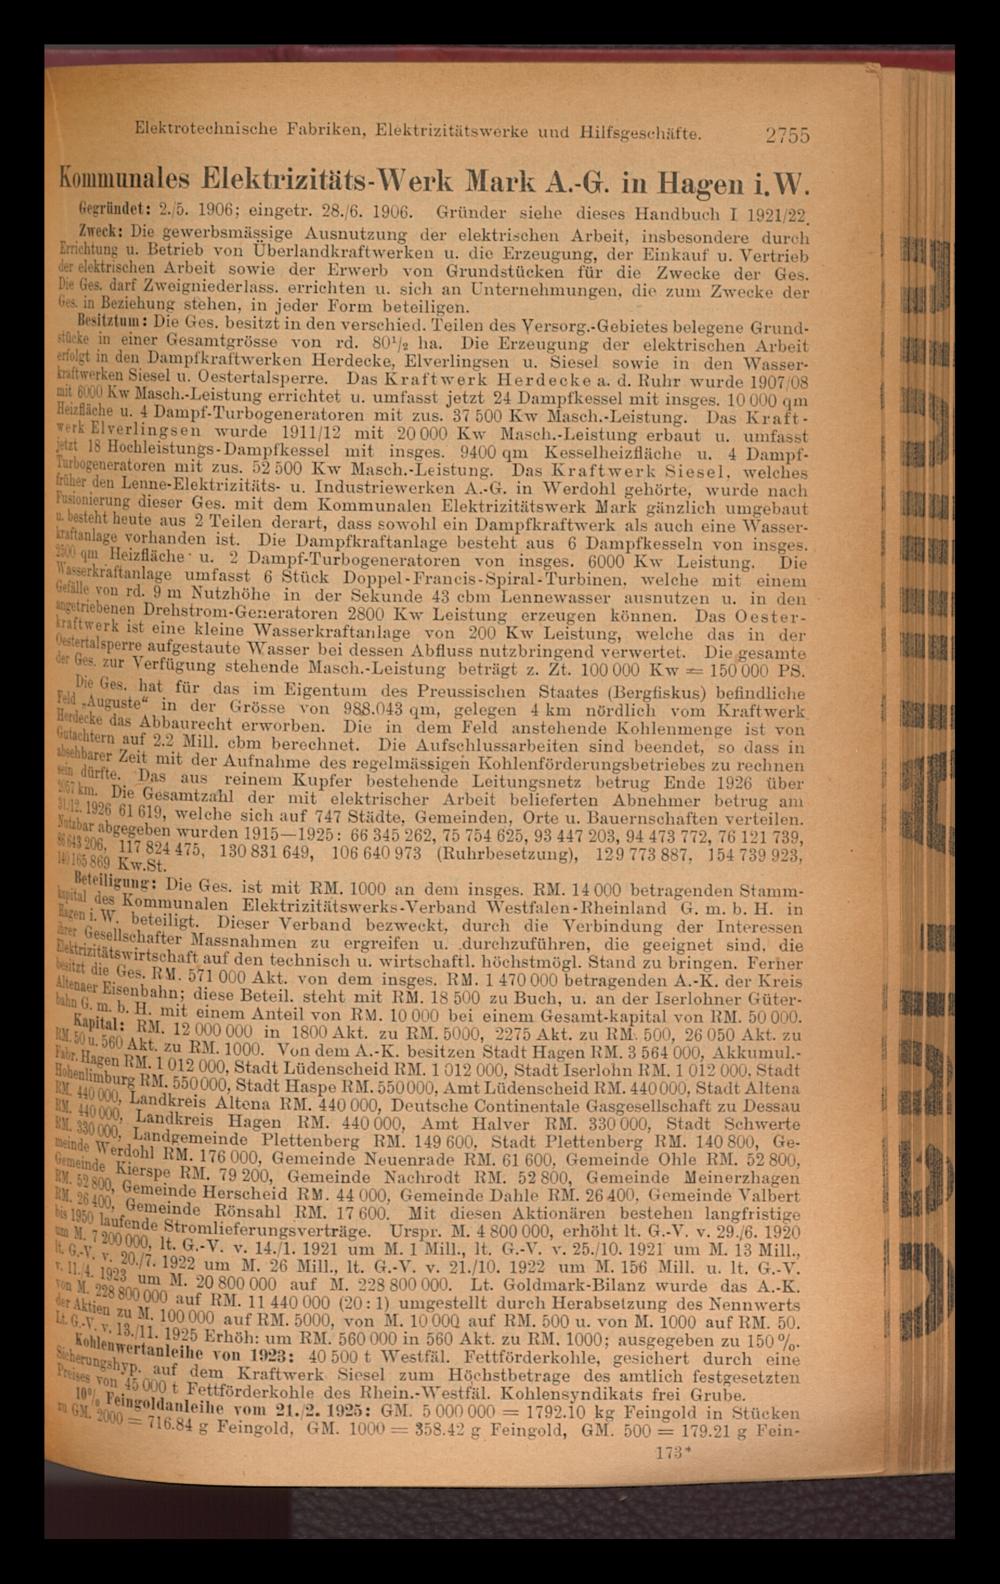 Elektrotechnische Fabriken, Elektrizitätswerke und Hilfsgeschäfte. 2755
Kommunales Elektrizitäts-Werk Mark A.-G. in Hagen i. W.
Gegründet: 2./5. 1906; eingetr. 28./6. 1906. Gründer siehe dieses Handbuch I 1921/22.
Zweck: Die gewerbsmässige Ausnutzung der elektrischen Arbeit, insbesondere durch
Errichtung u. Betrieb von Überlandkraftwerken u. die Erzeugung, der Einkauf u. Vertrieb
der elektrischen Arbeit sowie der Erwerb von Grundstücken für die Zwecke der Ges.
Die Ges. darf Zweigniederlass. errichten u. sich an Unternehmungen, die zum Zwecke der
Ges. in Beziehung stehen, in jeder Form beteiligen.
Besitztum: Die Ges. besitzt in den verschied. Teilen des Versorg.-Gebietes belegene Grund-
stücke in einer Gesamtgrösse von rd. 80½ ha. Die Erzeugung der elektrischen Arbeit
erfolgt in den Dampfkraftwerken Herdecke, Elverlingsen u. Siesel sowie in den Wasser-
kraftwerken Siesel u. Oestertalsperre. Das Kraftwerk Herdecke a. d. Ruhr wurde 1907/08
mit 6000 Kw Masch.-Leistung errichtet u. umfasst jetzt 24 Dampfkessel mit insges. 10 000 qm
Heizfläche u. 4 Dampf-Turbogeneratoren mit zus. 37 500 Kw Masch.-Leistung. Das Kraft-
werk Elverlingsen wurde 1911/12 mit 20 000 Kw Masch.-Leistung erbaut u. umfasst
jetzt 18 Hochleistungs-Dampfkessel mit insges. 9400 qm Kesselheizfläche u. 4 Dampf-
Turbogeneratoren mit zus. 52 500 Kw Masch.-Leistung. Das Kraftwerk Siesel, welches
früher den Lenne-Elektrizitäts- u. Industriewerken A.-G. in Werdohl gehörte, wurde nach
Fusionierung dieser Ges. mit dem Kommunalen Elektrizitätswerk Mark gänzlich umgebaut
u. besteht heute aus 2 Teilen derart, dass sowohl ein Dampfkraftwerk als auch eine Wasser-
kraftanlage vorhanden ist. Die Dampfkraftanlage besteht aus 6 Dampfkesseln von insges.
2500 qm Heizfläche u. 2 Dampf-Turbogeneratoren von insges. 6000 Kw Leistung. Die
Wasserkraftanlage umfasst 6 Stück Doppel-Francis-Spiral-Turbinen, welche mit einem
Gefälle von rd. 9 m Nutzhöhe in der Sekunde 43 cbm Lennewasser ausnutzen u. in den
angetriebenen Drehstrom-Generatoren 2800 Kw Leistung erzeugen können. Das Oester-
kraftwerk ist eine kleine Wasserkraftanlage von 200 Kw Leistung, welche das in der
Oestertalsperre aufgestaute Wasser bei dessen Abfluss nutzbringend verwertet. Die gesamte
der Ges. zur Verfügung stehende Masch.-Leistung beträgt z. Zt. 100 000 Kw = 150 000 PS.
Die Ges. hat für das im Eigentum des Preussischen Staates (Bergfiskus) befindliche
Feld „Auguste“ in der Grösse von 988.043 qm, gelegen 4 km nördlich vom Kraftwerk
Herdecke das Abbaurecht erworben. Die in dem Feld anstehende Kohlenmenge ist von
Gutachtern auf 2.2 Mill. cbm berechnet. Die Aufschlussarbeiten sind beendet, so dass in
absehbarer Zeit mit der Aufnahme des regelmässigen Kohlenförderungsbetriebes zu rechnen
sein dürfte. Das aus reinem Kupfer bestehende Leitungsnetz betrug Ende 1926 über
2067 km. Die Gesamtzahl der mit elektrischer Arbeit belieferten Abnehmer betrug am
31./12. 1926 61 619, welche sich auf 747 Städte, Gemeinden, Orte u. Bauernschaften verteilen.
Nutzbar abgegeben wurden 1915—1925: 66 345 262, 75 754 625, 93 447 203, 94 473 772, 76 121 739,
86 643 206, 117 824 475, 130 831 649, 106 640 973 (Ruhrbesetzung), 129 773 887, 154 739 923,
140 165 869 Kw.St.
Beteiligung: Die Ges. ist mit RM. 1000 an dem insges. RM. 14 000 betragenden Stamm-
kapital des Kommunalen Elektrizitätswerks-Verband Westfalen-Rheinland G. m. b. H. in
Hagen i. W. beteiligt. Dieser Verband bezweckt, durch die Verbindung der Interessen
ihrer Gesellschafter Massnahmen zu ergreifen u. durchzuführen, die geeignet sind, die
Elektrizitätswirtschaft auf den technisch u. wirtschaftl. höchstmögl. Stand zu bringen. Ferner
besitzt die Ges. RM. 571 000 Akt. von dem insges. RM. 1 470 000 betragenden A.-K. der Kreis
Altenaer Eisenbahn; diese Beteil. steht mit RM. 18 500 zu Buch, u. an der Iserlohner Güter-
bahn G. m. b. H. mit einem Anteil von RM. 10 000 bei einem Gesamt-kapital von RM. 50 000.
Kapital: RM. 12 000 000 in 1800 Akt. zu RM. 5000, 2275 Akt. zu RM. 500, 26 050 Akt. zu
RM. 50 u. 560 Akt. zu RM. 1000. Von dem A.-K. besitzen Stadt Hagen RM. 3 564 000, Akkumul.-
Fabr. Hagen RM. 1 012 000, Stadt Lüdenscheid RM. 1 012 000, Stadt Iserlohn RM. 1 012 000, Stadt
Hohenlimburg RM. 550 000, Stadt Haspe RM. 550 000, Amt Lüdenscheid RM. 440 000, Stadt Altena
RM. 440 000, Landkreis Altena RM. 440 000, Deutsche Continentale Gasgesellschaft zu Dessau
RM. 440 000, Landkreis Hagen RM. 440 000, Amt Halver RM. 330 000, Stadt Schwerte
RM. 330 000, Landgemeinde Plettenberg RM. 149 600, Stadt Plettenberg RM. 140 800, Ge-
meinde Werdohl RM. 176 000, Gemeinde Neuenrade RM. 61 600, Gemeinde Ohle RM. 52 800,
Gemeinde Kierspe RM. 79 200, Gemeinde Nachrodt RM. 52 800, Gemeinde Meinerzhagen
RM. 52 800, Gemeinde Herscheid RM. 44 000, Gemeinde Dahle RM. 26 400, Gemeinde Valbert
RM. 26 400, Gemeinde Rönsahl RM. 17 600. Mit diesen Aktionären bestehen langfristige
bis 1950 laufende Stromlieferungsverträge. Urspr. M. 4 800 000, erhöht lt. G.-V. v. 29./6. 1920
um M. 7 200 000, lt. G.-V. v. 14./1. 1921 um M. 1 Mill., lt. G.-V. v. 25./10. 1921 um M. 13 Mill.,
lt. G.-V. v. 20./7. 1922 um M. 26 Mill., lt. G.-V. v. 21./10. 1922 um M. 156 Mill. u. lt. G.-V.
v. 11./4. 1923 um M. 20 800 000 auf M. 228 800 000. Lt. Goldmark-Bilanz wurde das A.-K.
von M. 228 800 000 auf RM. 11 440 000 (20 : 1) umgestellt durch Herabsetzung des Nennwerts
der Aktien zu M. 100 000 auf RM. 5000, von M. 10 000 auf RM. 500 u. von M. 1000 auf RM. 50.
Lt. G.-V. v. 13./11. 1925 Erhöh: um RM. 560 000 in 560 Akt. zu RM. 1000; ausgegeben zu 150 %.
Kohlenwertanleihe von 1923: 40 500 t Westfäl. Fettförderkohle, gesichert durch eine
Sicherungshyp. auf dem Kraftwerk Siesel zum Höchstbetrage des amtlich festgesetzten
Preises von 45 000 t Fettförderkohle des Rhein.-Westfäl. Kohlensyndikats frei Grube.
10% Feingoldanleihe vom 21./2. 1925: GM. 5 000 000 = 1792.10 kg Feingold in Stücken
zu GM. 2000 = 716.84 g Feingold, GM. 1000 = 358.42 g Feingold, GM. 500 = 179.21 g Fein-
173*